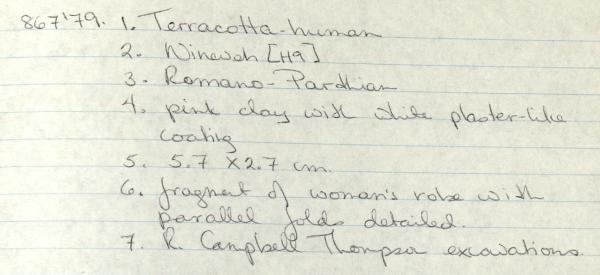 867'79. 1. Terracotta-human
2. Nineveh [H9]
3. Romano-Parthian
4. pink clay with white plaster-like
coating
5. 5.7 x 2.7 cm.
6. fragment of woman's robe with
parallel folds detailed.
7. R. Campbell Thompson excavations.